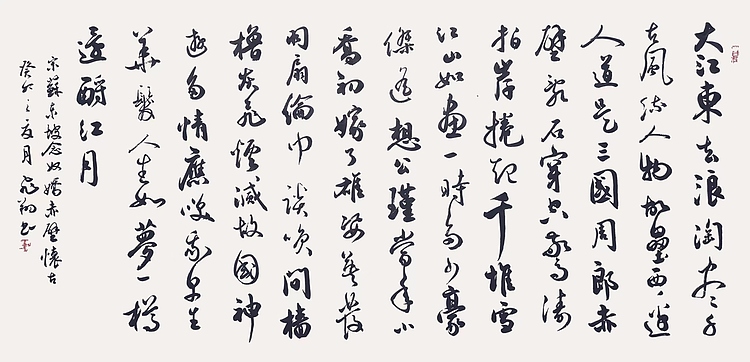 大江東去浪淘盡千
古風流人物故壘西邊
人道是三國周郎赤
壁亂石穿空驚濤
拍岸捲起千堆雪
江山如畫一時多少豪
傑遙想公瑾當年小
喬初嫁了雄姿英發
羽扇綸巾談笑間檣
櫓灰飛煙滅故國神
遊多情應笑我早生
華髮人生如夢一樽
還酹江月
宋蘇東坡念奴嬌赤壁懷古
癸卯之夏月翔書